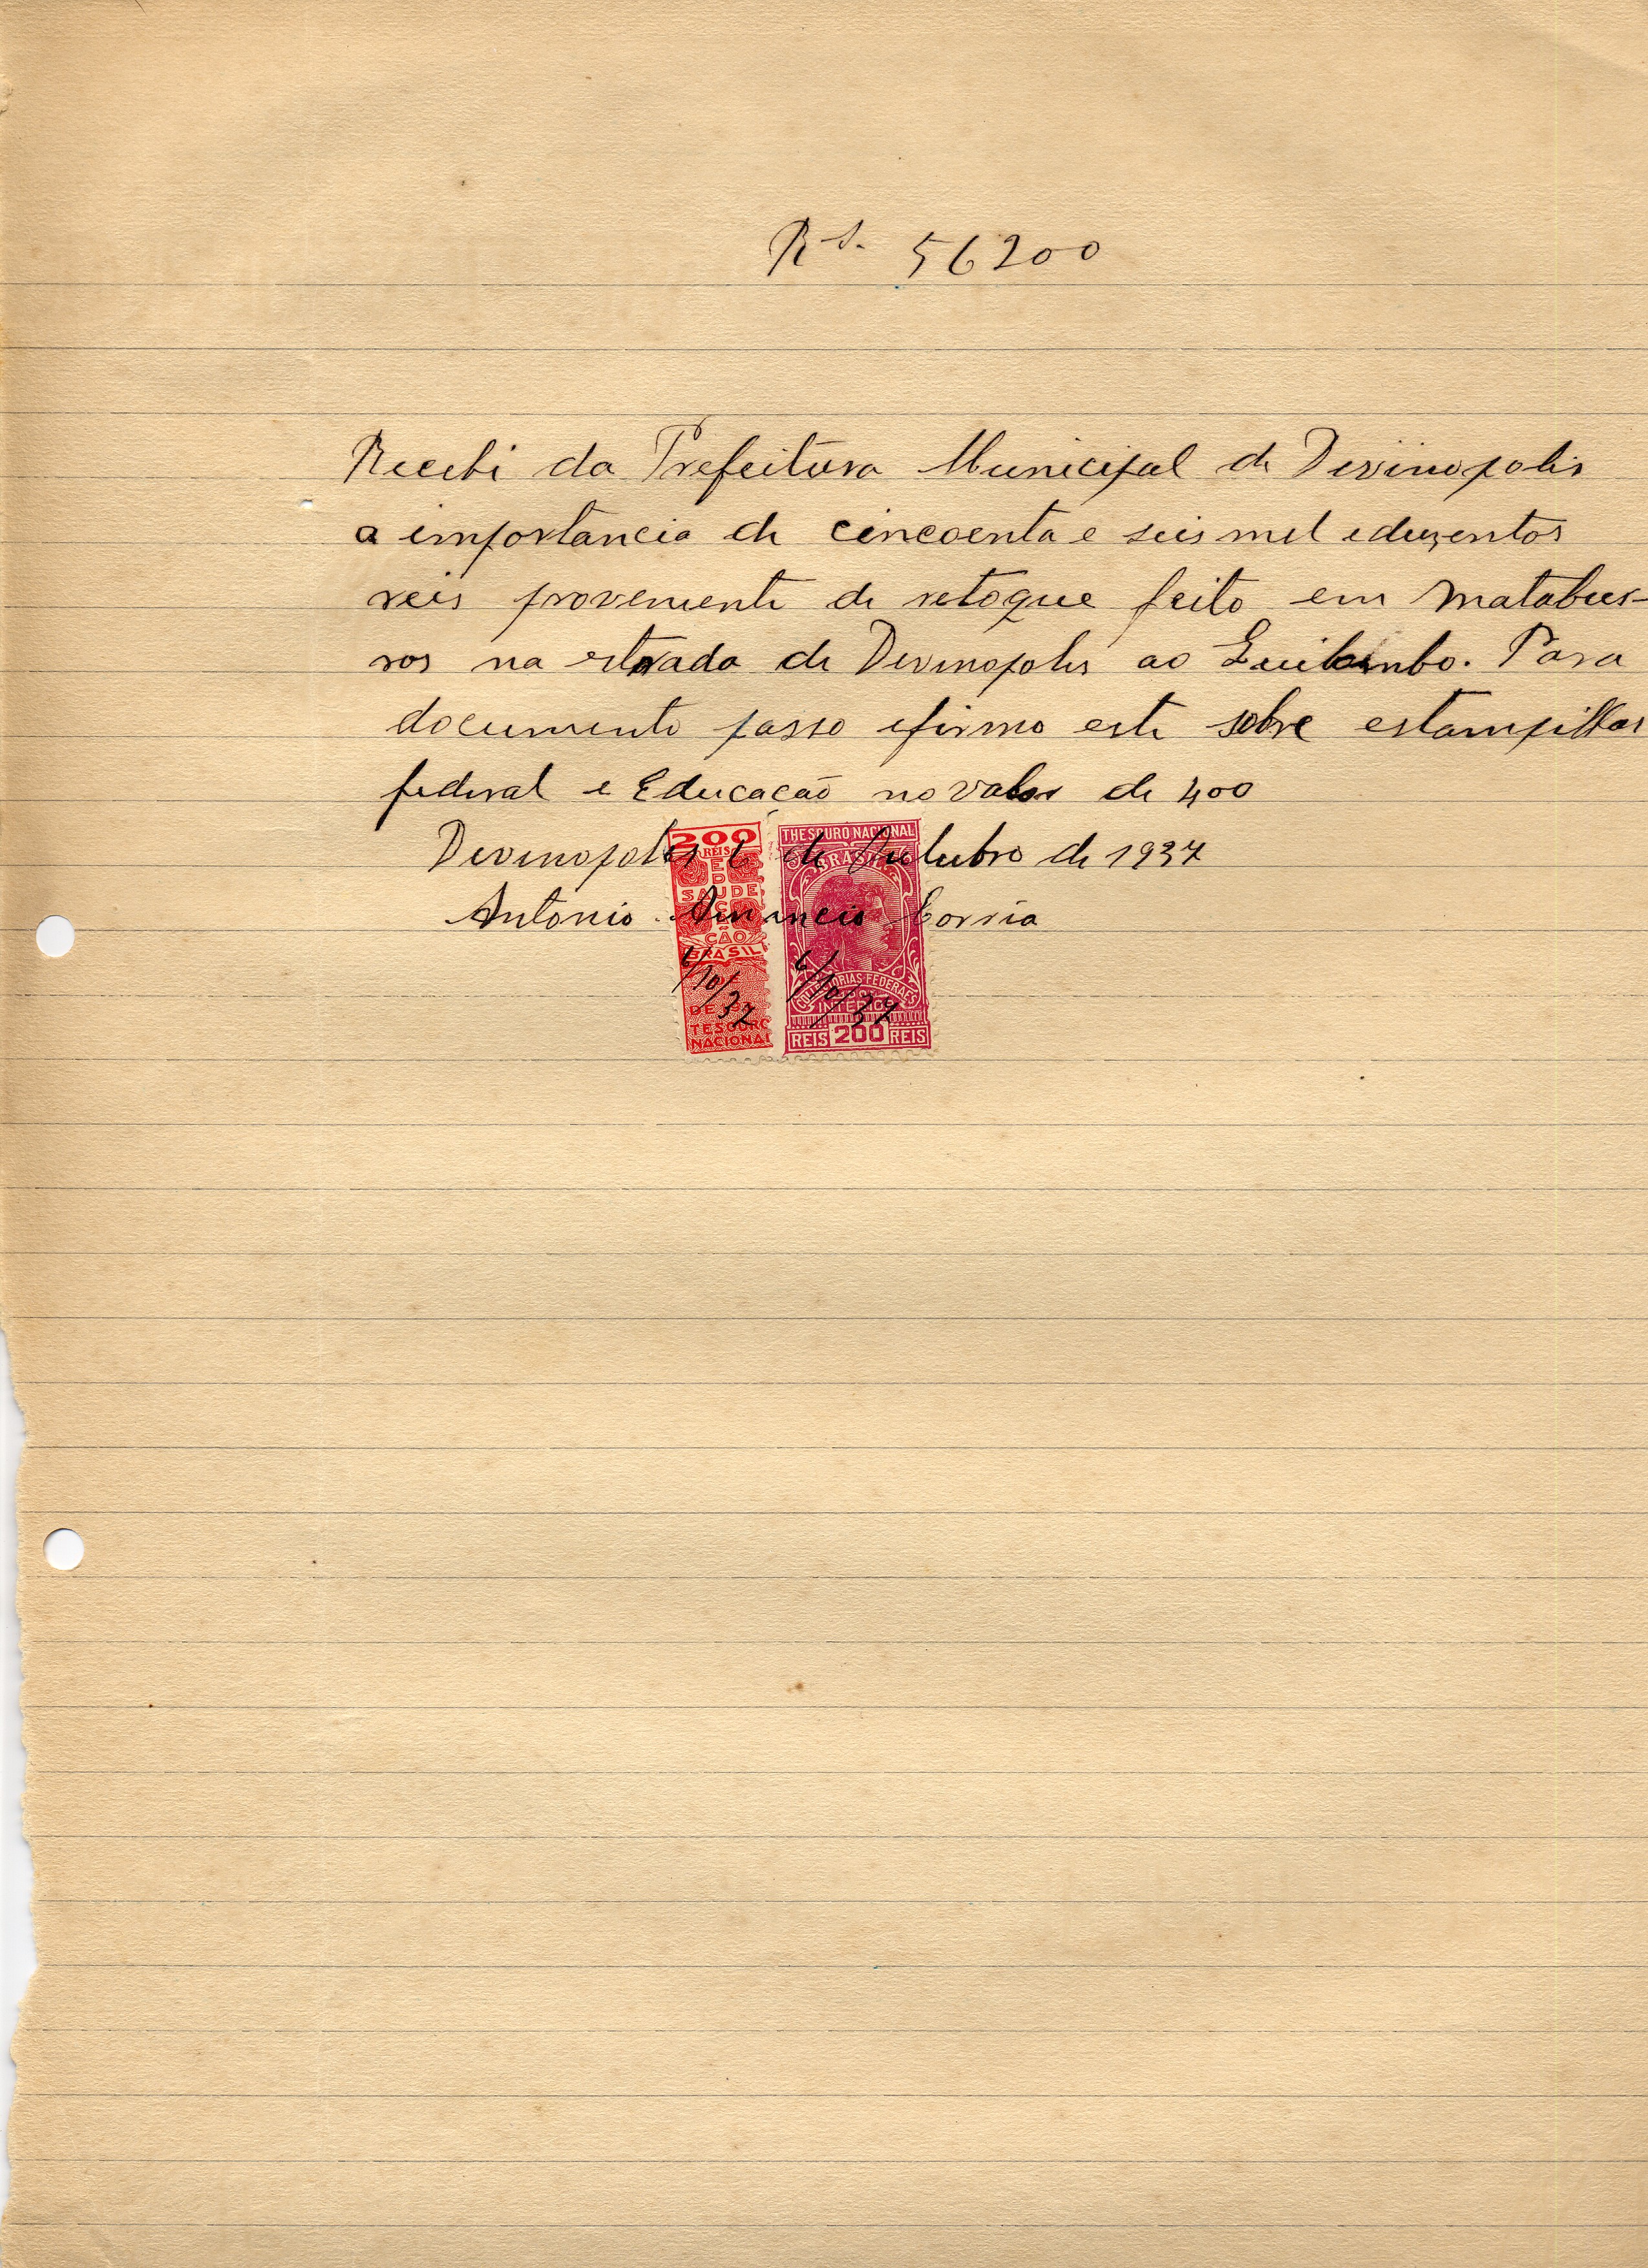 Rs. 56200
Recebi da Prefeitura Municipal de Divinopolis
a importancia de cincoenta e seis mil e duzentos
reis proveniente de retoque feito em matabur-
ros na estrada de Divinopolis ao Quilombo. Para
documento passo e firmo este sobre estampilhas
federal e Educacão no valor de 400
Divinopolis 6 de Outubro de 1937
Antonio Amancio Corrêa
200
REIS
ED
SAUDE
CÃO
BRASIL
TESOURO
NACIONAL
6/10/37
THESOURO NACIONAL
BRASIL
COLLECTORIAS FEDERAES
INTERIOR
REIS 200 REIS
6/10/37